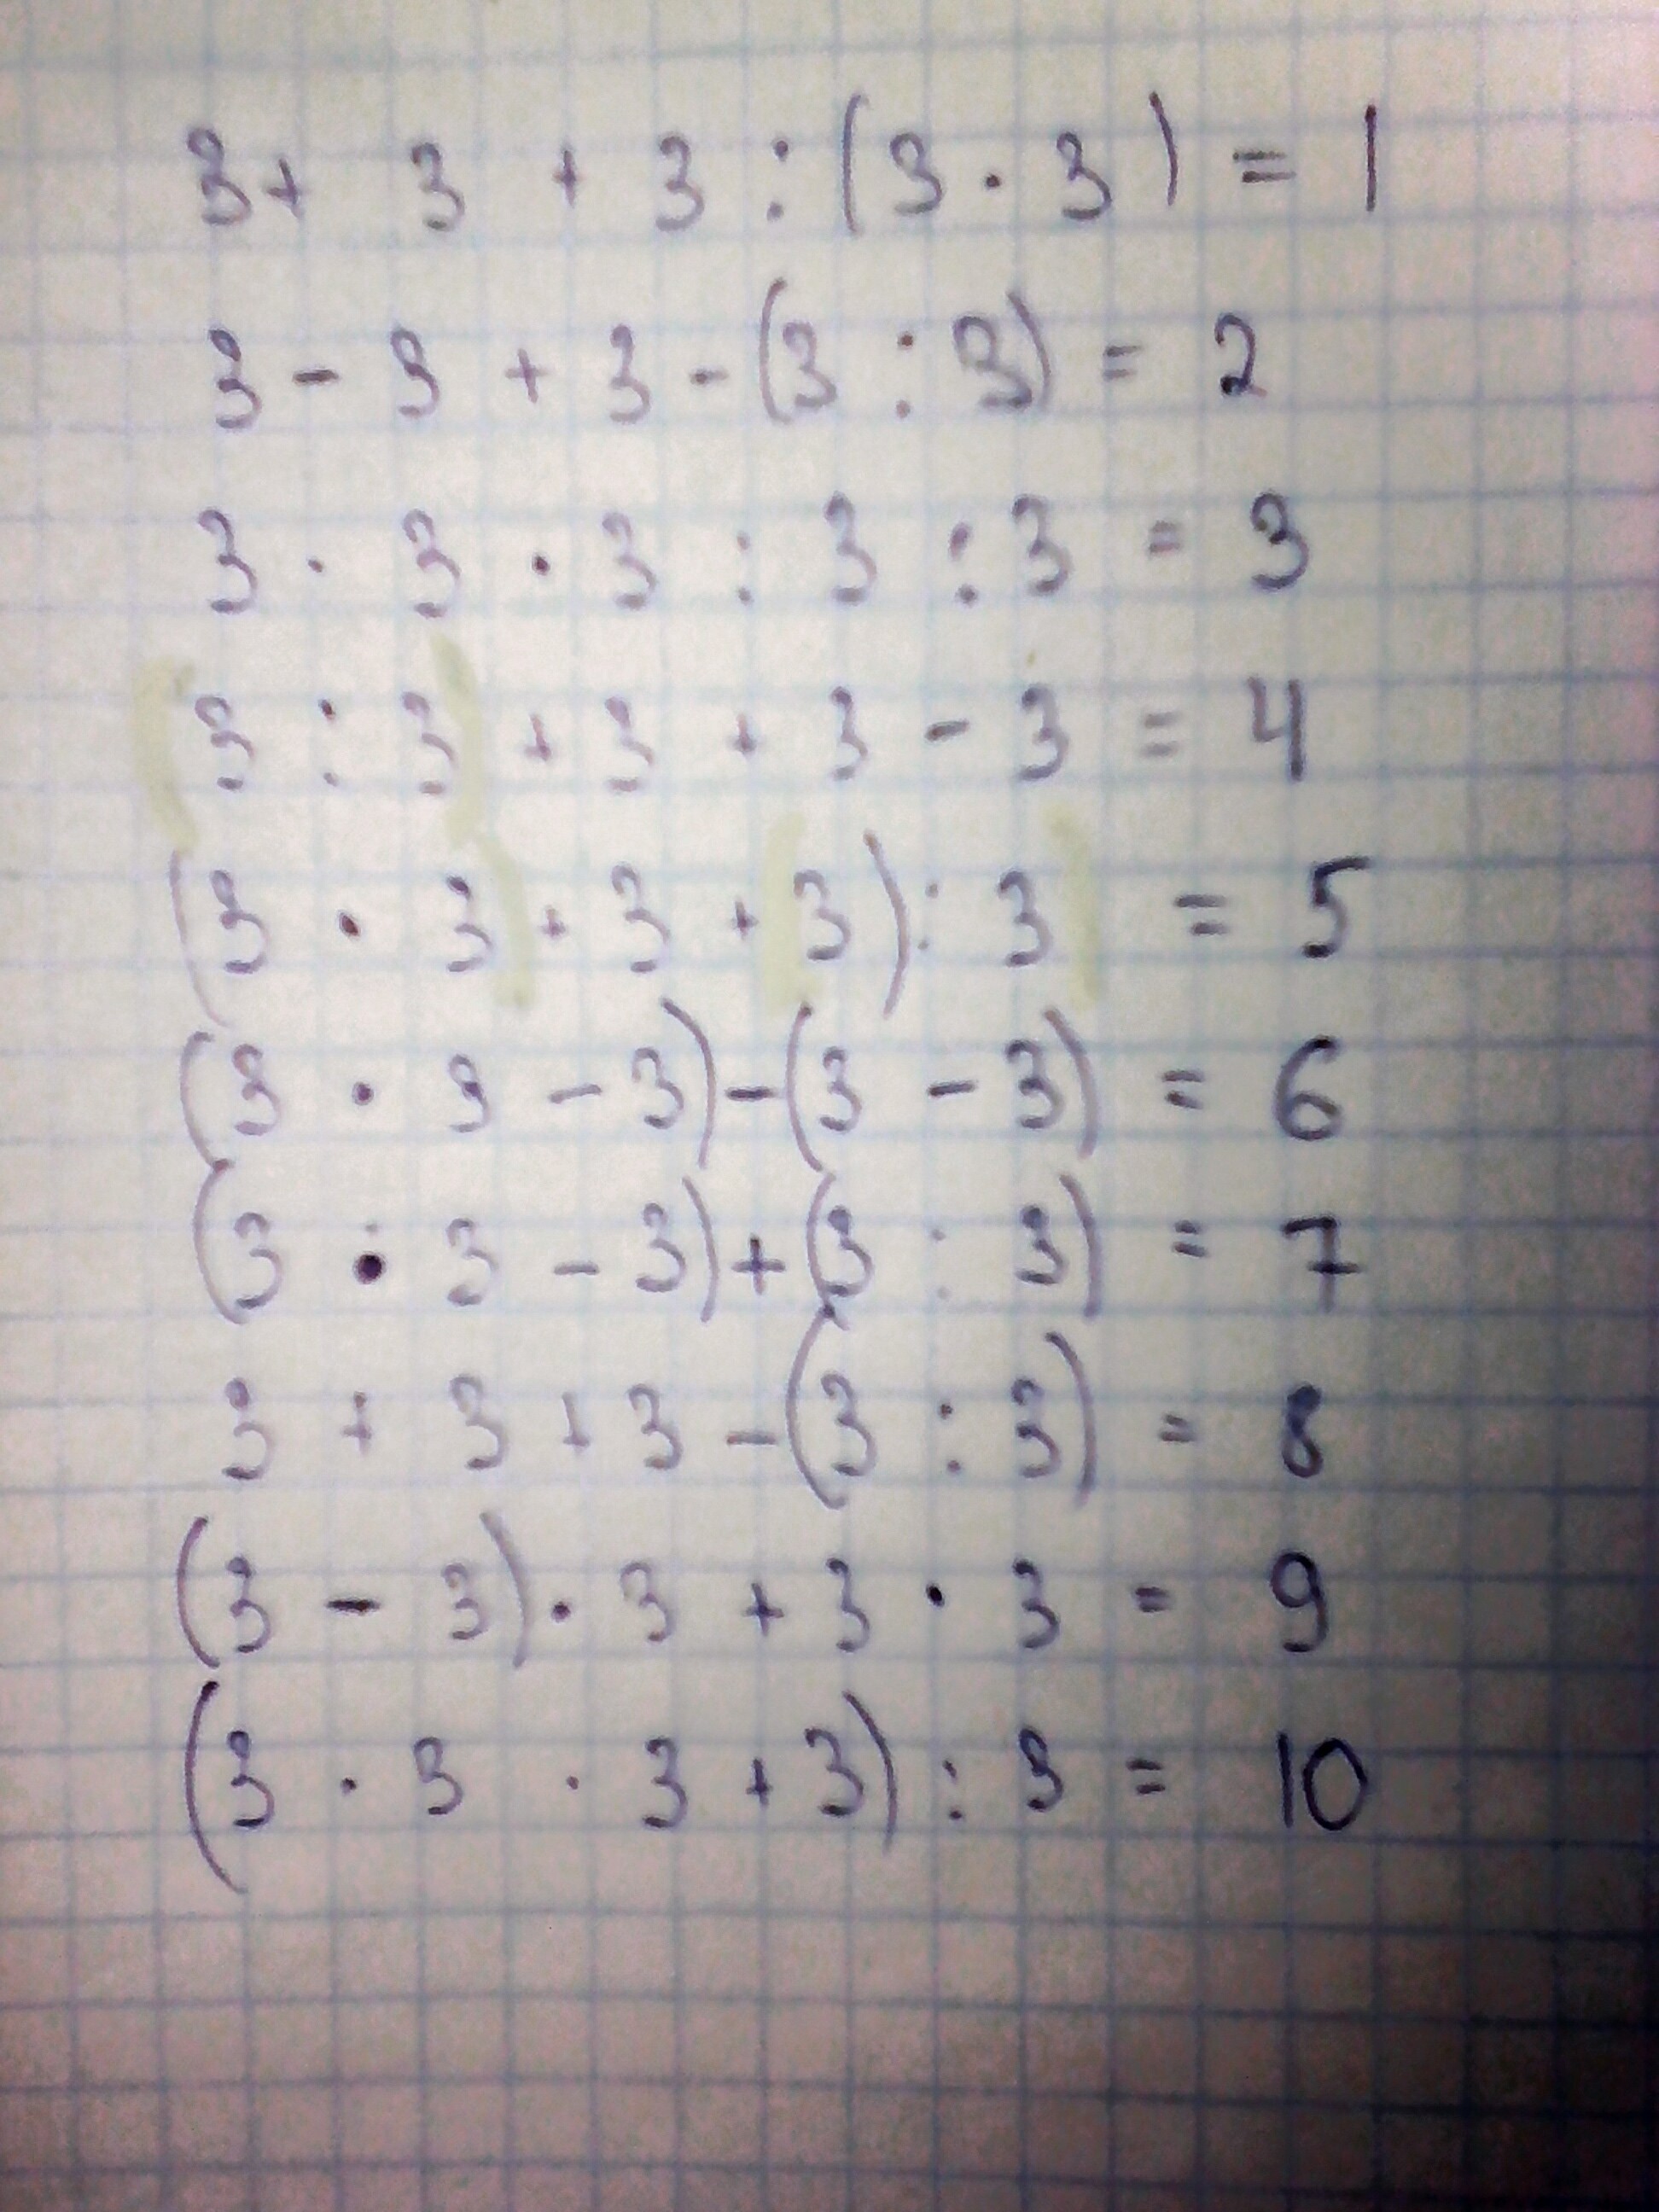 3 + 3 + 3 : (3 · 3) = 1
3 - 3 + 3 - (3 : 3) = 2
3 · 3 · 3 : 3 : 3 = 3
(3 : 3) + 3 + 3 - 3 = 4
(3 · 3 + 3 + 3) : 3 = 5
(3 · 3 - 3) - (3 - 3) = 6
(3 · 3 - 3) + (3 : 3) = 7
3 + 3 + 3 - (3 : 3) = 8
(3 - 3) · 3 + 3 · 3 = 9
(3 · 3 · 3 + 3) : 3 = 10